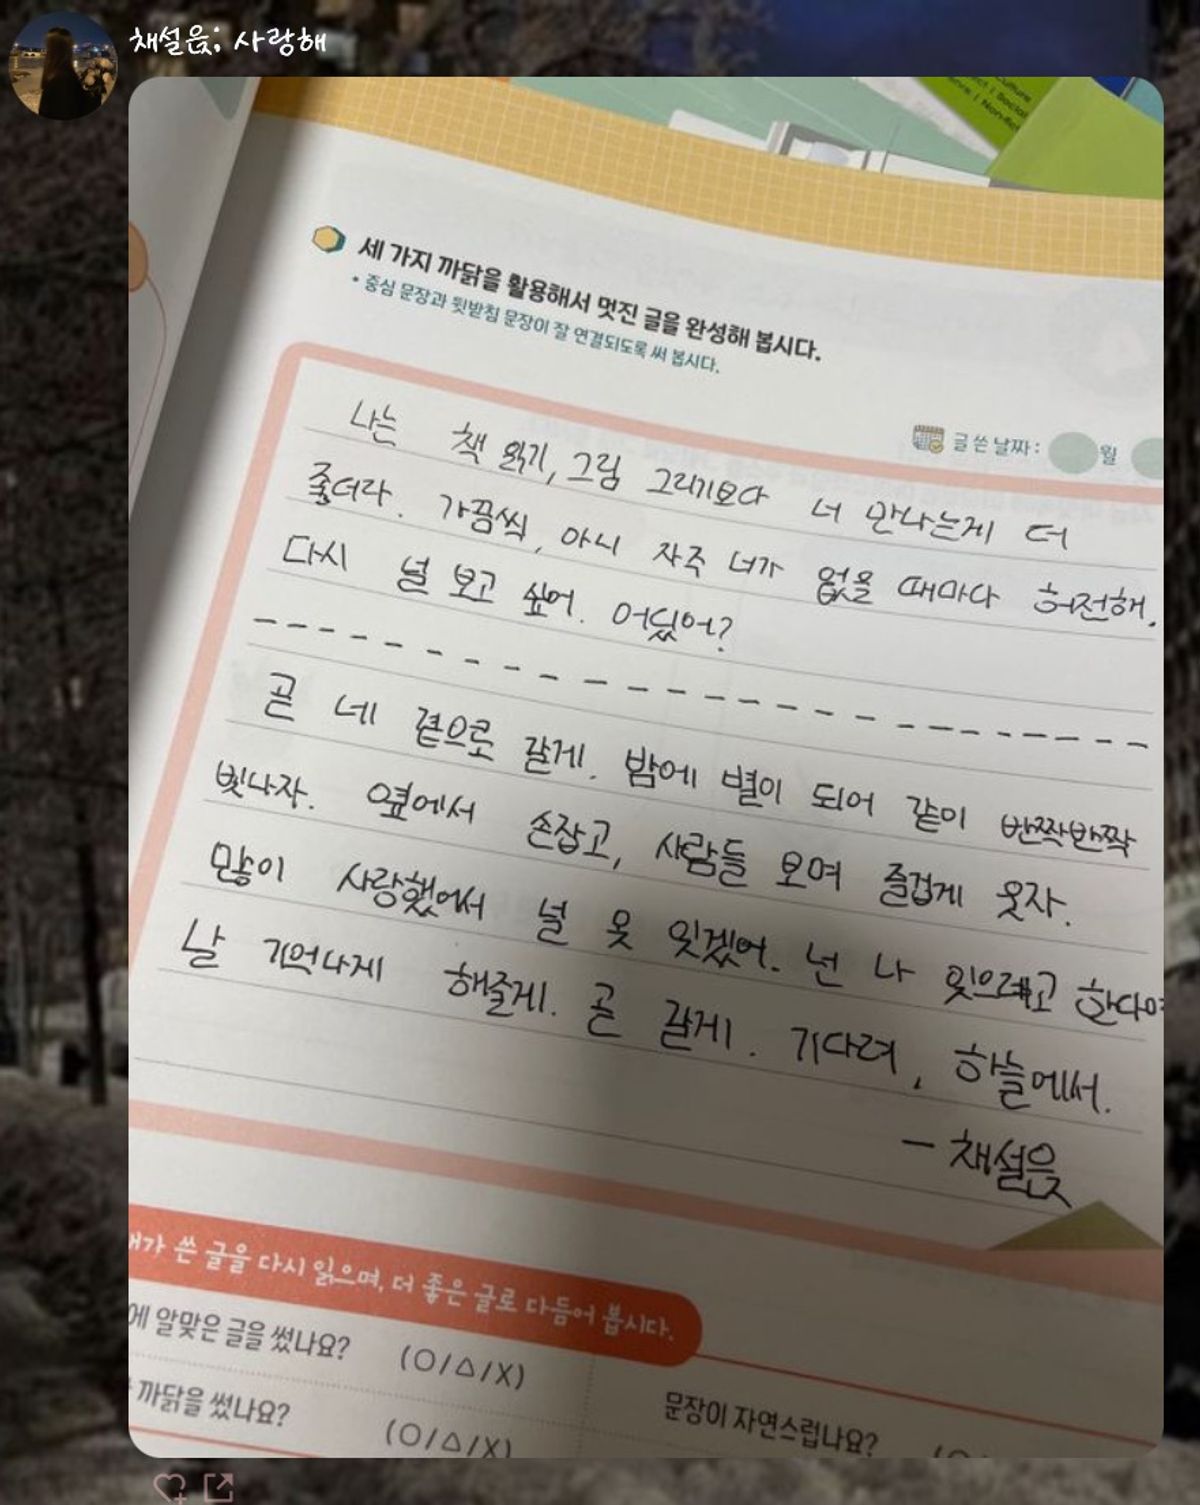 채설읎; 사랑해
세 가지 까닭을 활용해서 멋진 글을 완성해 봅시다.
• 중심 문장과 뒷받침 문장이 잘 연결되도록 써 봅시다.
글 쓴 날짜: 월
나는 책 읽기, 그림 그리기보다 너 만나는게 더
좋더라. 가끔씩, 아니 자주 너가 없을 때마다 허전해.
다시 널 보고 싶어. 어딨어?
곧 네 곁으로 갈게. 밤에 별이 되어 같이 반짝반짝
빛나자. 옆에서 손잡고, 사람들 보며 즐겁게 웃자.
많이 사랑했어서 널 못 잊겠어. 넌 나 잊으려고 한다며
날 기억나게 해줄게. 곧 갈게. 기다려, 하늘에서.
- 채설읎
내가 쓴 글을 다시 읽으며, 더 좋은 글로 다듬어 봅시다.
에 알맞은 글을 썼나요? (O/△/X)
까닭을 썼나요? (O/△/X)
문장이 자연스럽나요?